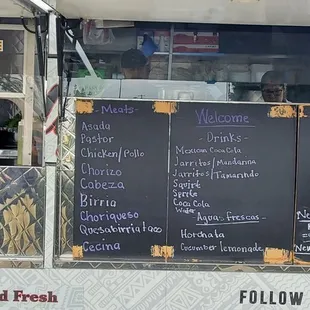 -Meats-
Asada
Pastor
Chicken/Pollo
Chorizo
Cabeza
Birria
Choriqueso
Quesabirria taco
Cecina
Welcome
-Drinks-
Mexican Coca Cola
Jarritos/Mandarina
Jarritos/Tamarindo
Squirt
Sprite
Coca Cola
Water
Aguas frescas
Horchata
Cucumber lemonade
d Fresh
FOLLOW